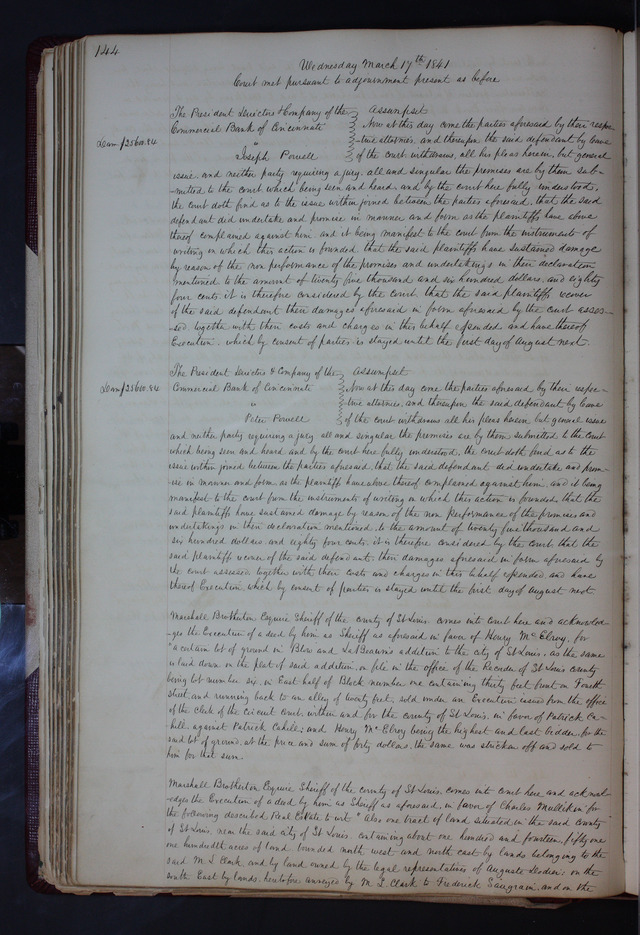 144
Wednesday March 17th 1841
Court met pursuant to adjournment present as before
The President Directors & Company of the Assumpsit
Commercial Bank of Cincinnate Now at this day come the parties aforesaid by their respe-
Dam $25600.84 vs -tive attornies, and thereupon the said defendant by leave
Joseph Powell of the court withdraws, all his pleas herein, but general
issue, and neither party requiring a jury, all and singular the premises are by them sub-
-mitted to the court which being seen and heard, and by the court here fully understood,
the court doth find as to the issue within joined between the parties aforesaid, that the said
defendant did undertake and promise in manner and form as the plaintiffs have above
thereof complained against him, and it being manifest to the court from the instruments of
writing on which this action is founded, that the said plaintiffs have sustained damage
by reason of the non performance of the promises and undertakings in their declaration
mentioned to the amount of twenty five thousand and six hundred dollars, and eighty
four cents, it is therefore considered by the court, that the said plaintiffs recover
of the said defendant their damages aforesaid in form aforesaid by the court asses-
-sed together with their costs and charges in this behalf expended, and have thereof
Execution, which by consent of parties is stayed until the first day of August next.
The President Directors & Company of the Assumpsit
Dam $25600.84 Commercial Bank of Cincinnate Now at this day come the parties aforesaid by their respe-
vs -tive attornies, and thereupon the said defendant by leave
Peter Powell of the court withdraws all his pleas herein but general issue
and neither party requiring a jury all and singular the premises are by them submitted to the court
which being seen and heard and by the court here fully understood, the court doth find as to the
issue within joined between the parties aforesaid, that the said defendant did undertake and prom-
-ise in manner and form as the plaintiff have above thereof complained against him, and it being
manifest to the court from the instruments of writing on which this action is founded, that the
said plaintiffs have sustained damage by reason of the non performance of the promises and
undertakings in their declaration mentioned, to the amount of twenty five thousand and
six hundred dollars and eighty four cents, it is therefore considered by the court that the
said plaintiff recover of the said defendant their damages aforesaid in form aforesaid by
the court assessed together with their costs and charges in this behalf expended and have
thereof Execution, which by consent of parties is stayed until the first day of august next
Marshall Brotherton Esquire Sheriff of the county of St Louis comes into court here and acknowled-
-ges the Execution of a deed by him as Sheriff as aforesaid in favor of Henry McElroy, for
"a certain lot of ground in Blow and LaBeaum's addition to the city of St Louis, as the same
is laid down on the plat of said addition, on file in the office of the Recorder of St Louis county
being lot number six, in East half of Block number one containing thirty feet front on Fourth
street, and running back to an alley of twenty feet, sold under an Execution issued from the office
of the Clerk of the Circuit court, within and for the county of St Louis, in favor of Patrick Ca-
hill against Patrick Cahill; and Henry McElroy being the highest and last bidder, for the
said lot of ground, at the price and sum of forty dollars, the same was stricken off and sold to
him for that sum.
Marshall Brotherton Esquire Sheriff of the county of St Louis, comes into court here and acknowl-
-edges the Execution of a deed by him as Sheriff as aforesaid, in favor of Charles Mulliken for
the following described Real Estate to wit "Also one tract of land situated in the said county
of St Louis, near the said city of St Louis, containing about one hundred and fourteen, fifty one
one hundredth acres of land, bounded north west and north east by lands belonging to the
said M. L. Clark, and by land owned by the legal representatives of Auguste Dodier; on the
south East by lands, heretofore annexed by M. L. Clark to Frederick Saugrain, and on the